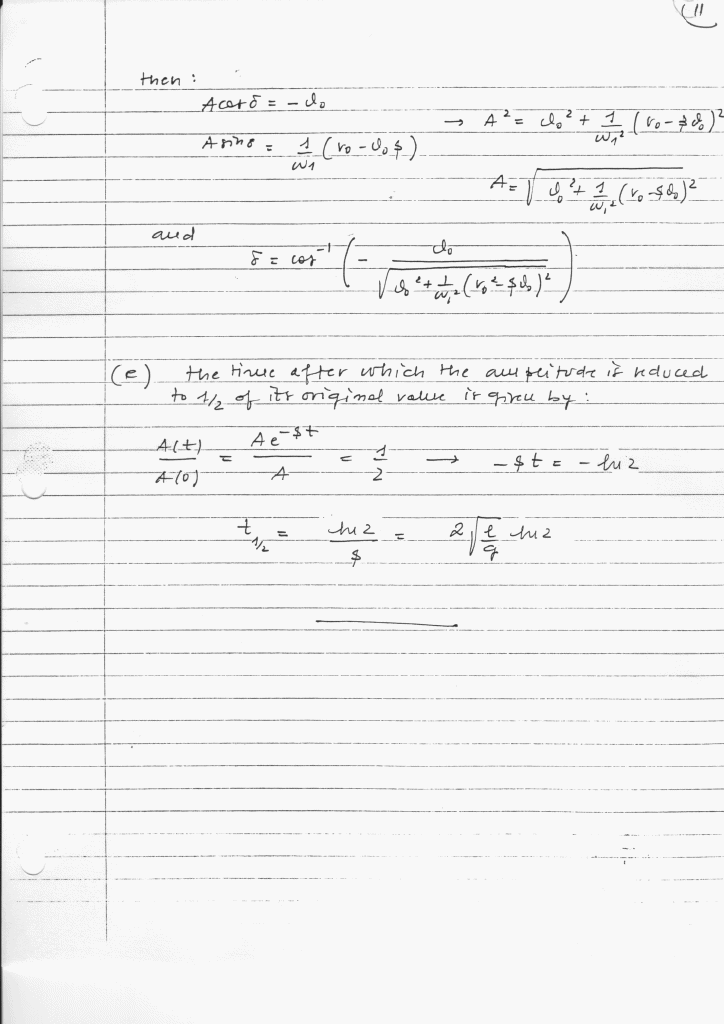 11
then :
A cos δ = - d₀
→ A² = d₀² + 1/ω₁² (v₀ - ξd₀)²
A sin δ = 1/ω₁ (v₀ - d₀ξ)
A = √(d₀² + 1/ω₁² (v₀ - ξd₀)²)
and
δ = cos⁻¹ (- d₀/√(d₀² + 1/ω₁² (v₀² - ξd₀)²))
(e) the time after which the amplitude is reduced
to 1/2 of its original value is given by :
A(t)/A(0) = A e^(-ξt)/A = 1/2 → -ξt = - ln 2
t_1/2 = ln 2/ξ = 2√(l/g) ln 2